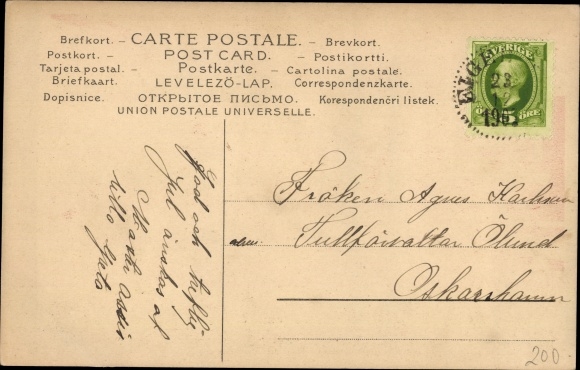 Brefkort. – CARTE POSTALE. – Brevkort.
Postkort. – POST CARD. – Postikortti.
Tarjeta postal. – Postkarte. – Cartolina postale.
Briefkaart. – LEVELEZŐ-LAP. – Correspondenzkarte.
Dopisnice. – ОТКРЫТОЕ ПИСЬМО. – Korespondenčri listek.
UNION POSTALE UNIVERSELLE.
SVERIGE
ÖRE
23
12
God och
Jul önskas af
Fröken Agnes Karlsson
adress. Tullförvaltar Ölund
Oskarshamn
200.